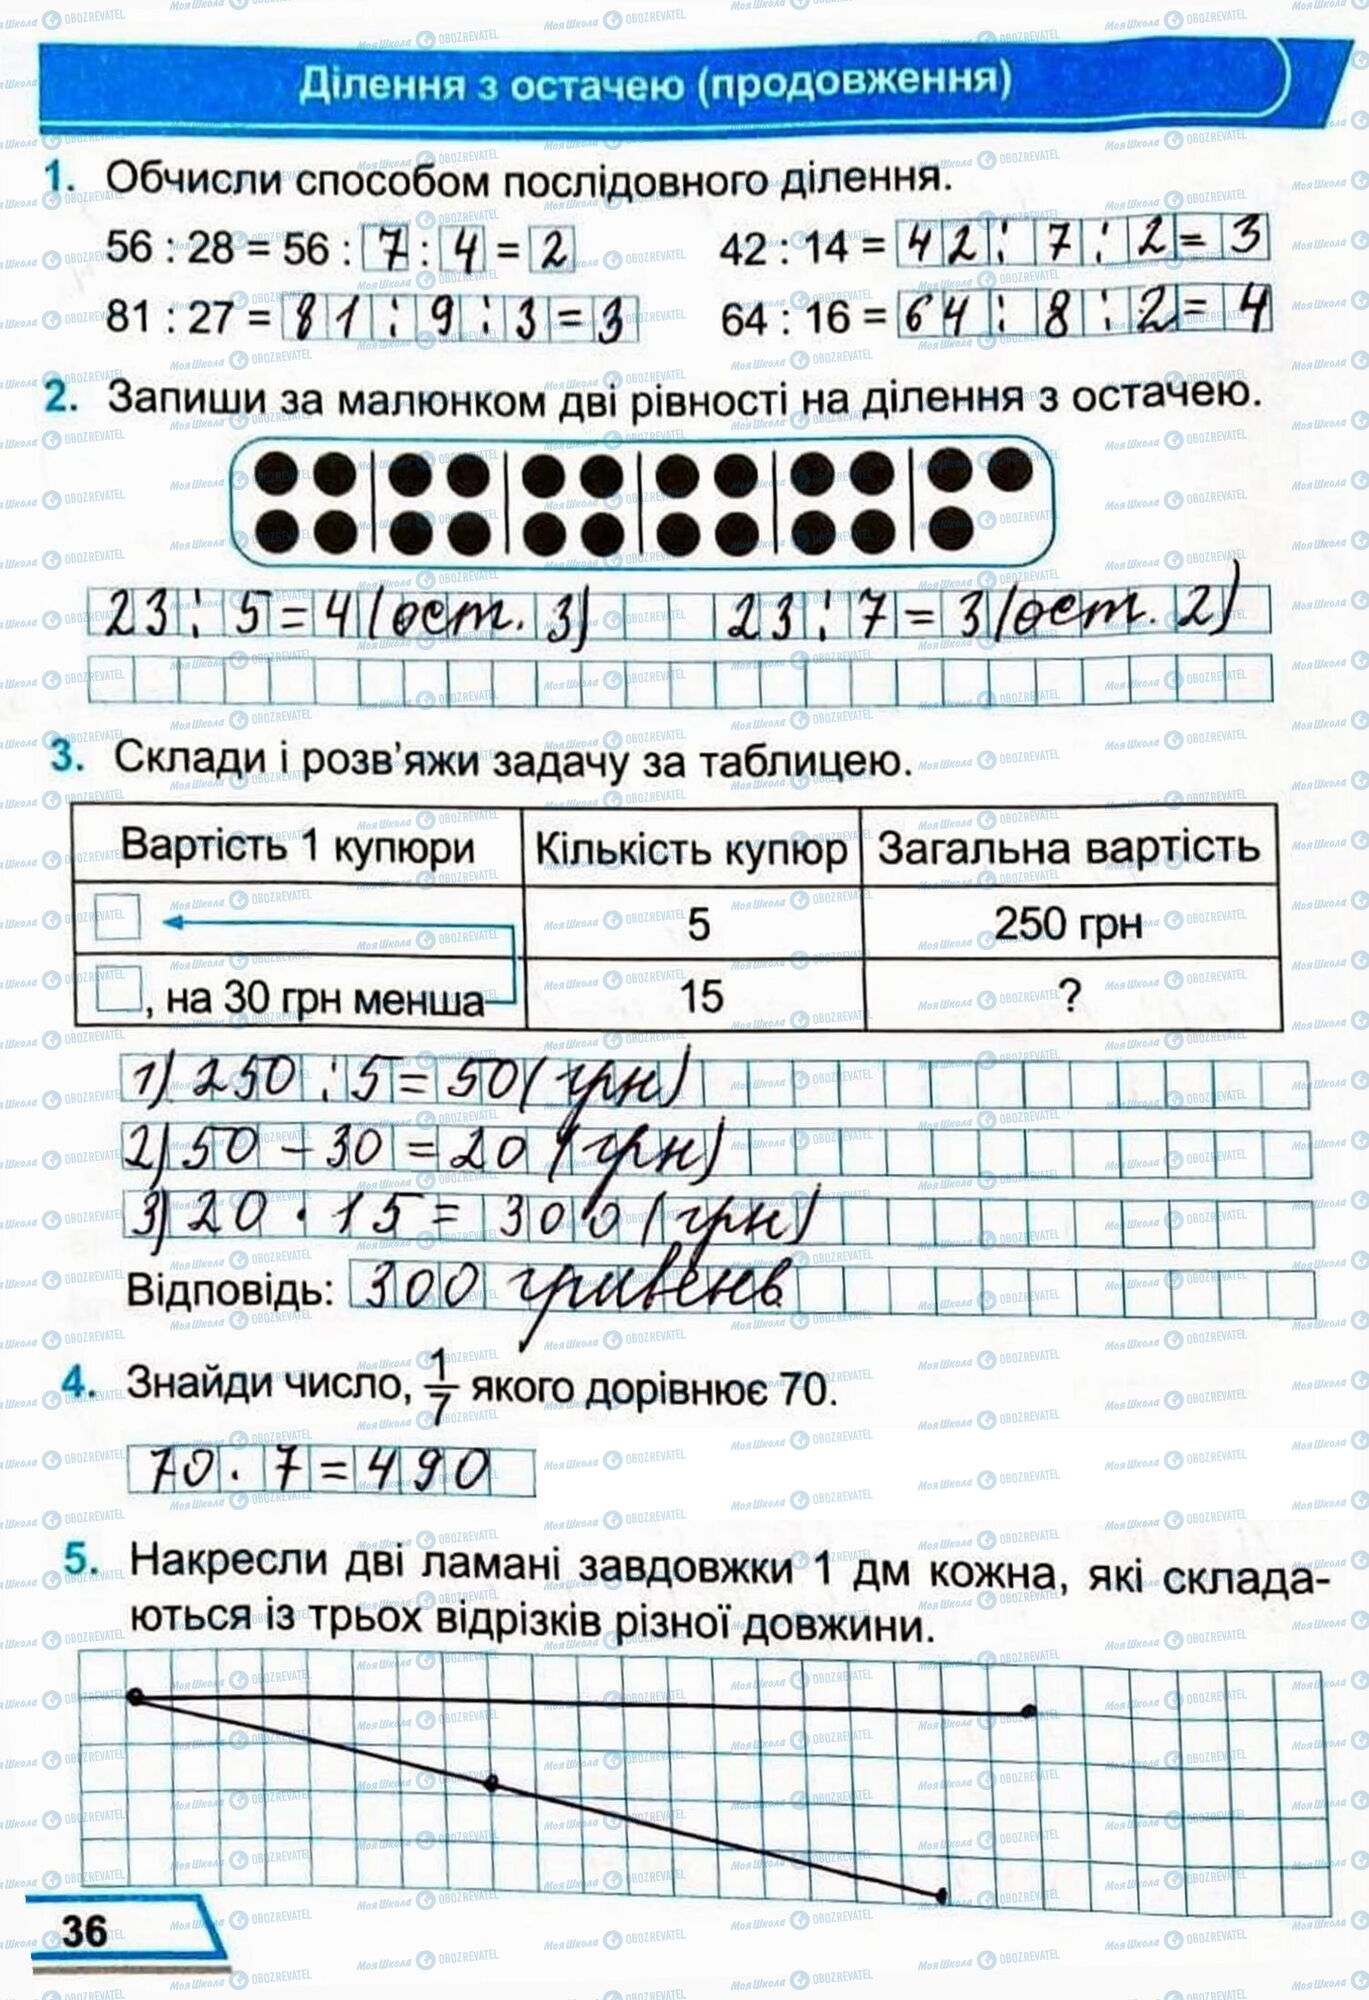 Ділення з остачею (продовження)
1. Обчисли способом послідовного ділення.
56 : 28 = 56 : 7 : 4 = 2 42 : 14 = 42 : 7 : 2 = 3
81 : 27 = 81 : 9 : 3 = 3 64 : 16 = 64 : 8 : 2 = 4
2. Запиши за малюнком дві рівності на ділення з остачею.
23 : 5 = 4 (ост. 3) 23 : 7 = 3 (ост. 2)
3. Склади і розв'яжи задачу за таблицею.
Вартість 1 купюри Кількість купюр Загальна вартість
5 250 грн
, на 30 грн менша 15 ?
1) 250 : 5 = 50 (грн)
2) 50 - 30 = 20 (грн)
3) 20 · 15 = 300 (грн)
Відповідь: 300 гривень.
4. Знайди число, 1/7 якого дорівнює 70.
70 · 7 = 490
5. Накресли дві ламані завдовжки 1 дм кожна, які склада-
ються із трьох відрізків різної довжини.
36
МояШкола OBOZREVATEL